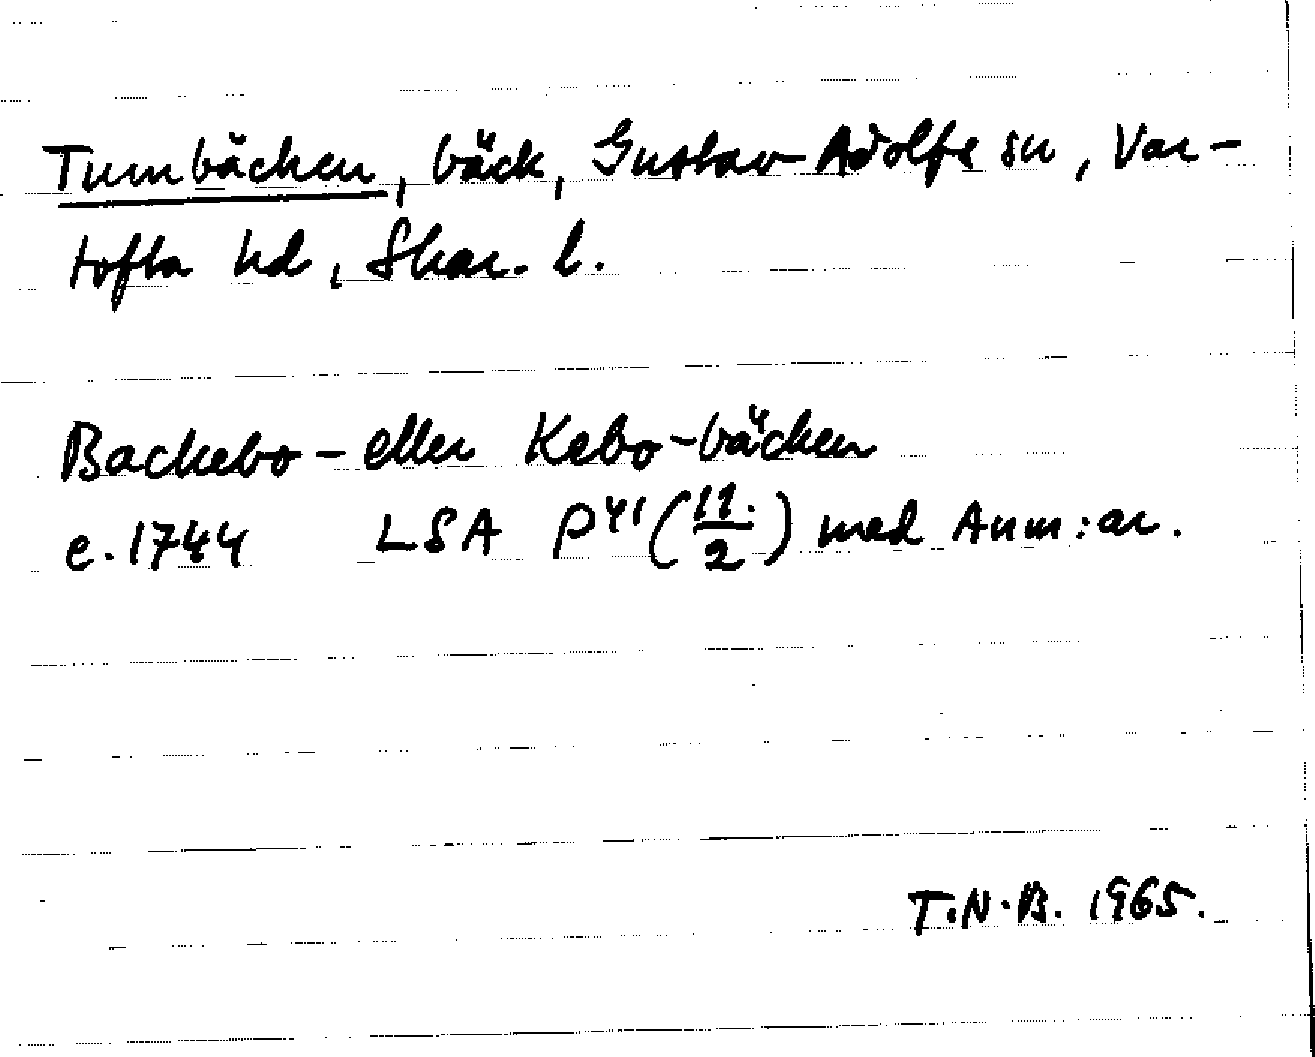 Tumbäcken, bäck, Gustav Adolfs sn, Var-
tofta hd, Skar. l.
Backebo- eller Kebo-bäcken
c. 1744 LSA P41 (11./2) med Anm:ar.
T.N.B. 1965.